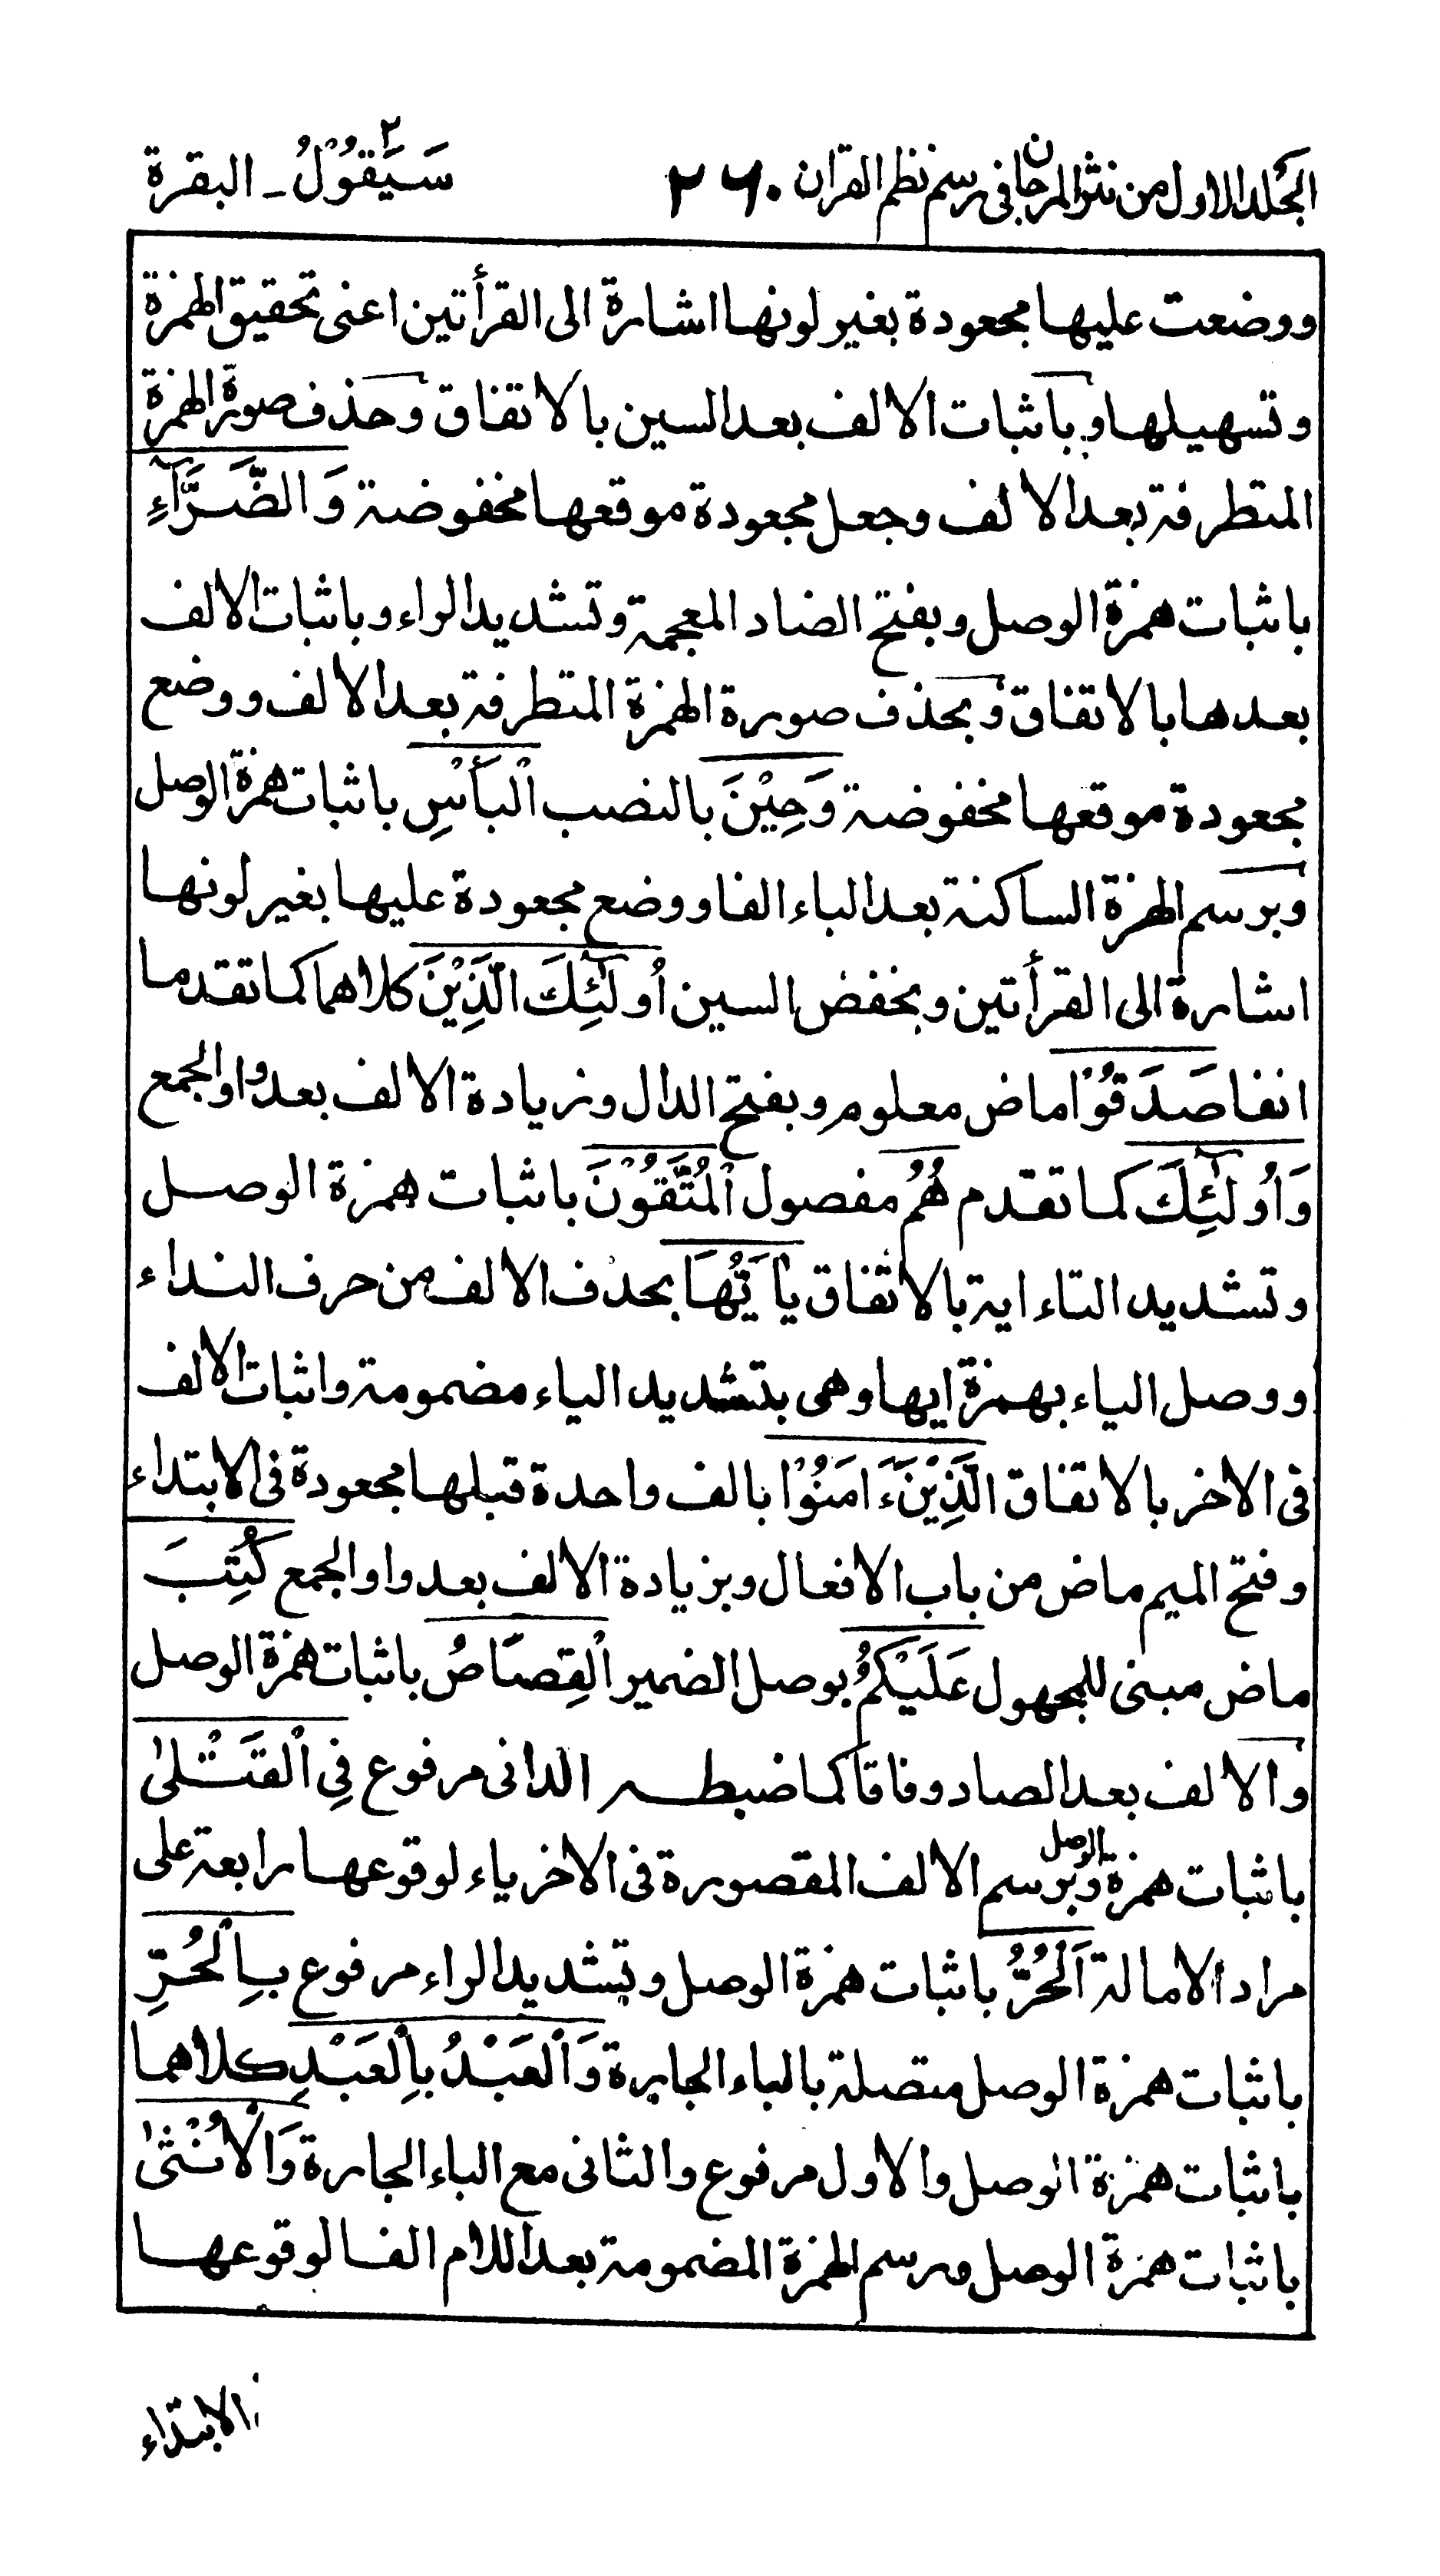 المجلد الاول من نثر المرجان فى رسم نظم القران ٢٦٠ سَيَقُوْلُ ٢ ـ البقرة
ووضعت عليها مجعودة بغير لونها اشارة الى القرأتين اعنى تحقيق الهمزة
وتسهيلها وباثبات الالف بعد السين بالاتفاق وحذف صورة الهمزة
المتطرفة بعد الالف وجعل مجعودة موقعها مخفوضة وَالضَّرَّآءِ
باثبات همزة الوصل وبفتح الضاد المعجمة وتشديد الراء وباثبات الالف
بعدها بالاتفاق وبحذف صورة الهمزة المتطرفة بعد الالف ووضع
مجعودة موقعها مخفوضة وَحِيْنَ بالنصب الْبَأْسِ باثبات همزة الوصل
وبرسم الهمزة الساكنة بعد الباء الفا ووضع مجعودة عليها بغير لونها
اشارة الى القرأتين وبخفض السين اُولٰٓئِكَ الَّذِيْنَ كلاهما كما تقدما
انفا صَدَقُوْا ماض معلوم وبفتح الدال وزيادة الالف بعد واو الجمع
وَاُولٰٓئِكَ كما تقدم هُمُ مفصول الْمُتَّقُوْنَ باثبات همزة الوصل
وتشديد التاء اية بالاتفاق يٰاَيُّهَا بحذف الالف من حرف النداء
ووصل الياء بهمزة ايها وهى بتشديد الياء مضمومة واثبات الالف
فى الاخر بالاتفاق الَّذِيْنَ ءَامَنُوْا بالف واحدة قبلها مجعودة فى الابتداء
وفتح الميم ماض من باب الافعال وبزيادة الالف بعد واو الجمع كُتِبَ
ماض مبنى للمجهول عَلَيْكُمُ بوصل الضمير الْقِصَاصُ باثبات همزة الوصل
والالف بعد الصاد وفاقا كما ضبطه الدانى مرفوع فِى الْقَتْلٰى
باثبات همزة الوصل وبرسم الالف المقصورة فى الاخر ياء لوقوعها رابعة على
مراد الامالة اَلْحُرُّ باثبات همزة الوصل وتشديد الراء مرفوع بِالْحُرِّ
باثبات همزة الوصل متصلة بالباء الجارة وَالْعَبْدُ بِالْعَبْدِ كلاهما
باثبات همزة الوصل والاول مرفوع والثانى مع الباء الجارة وَالْاُنْثٰى
باثبات همزة الوصل ورسم الهمزة المضمومة بعد اللام الفا لوقوعها
الابتداء